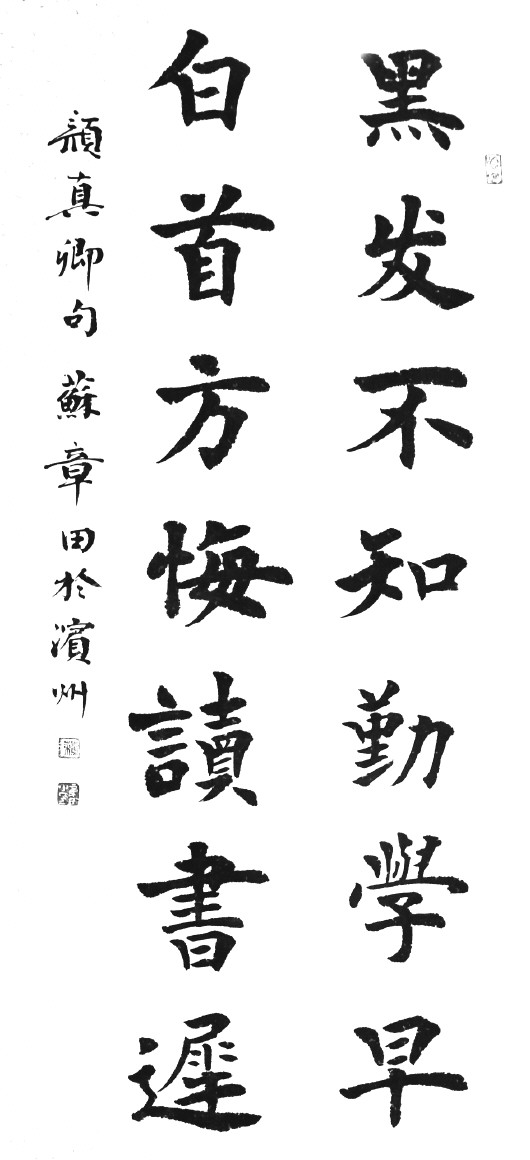 黑发不知勤學早
白首方悔讀書遲
顏真卿句 蘇章田於濱州